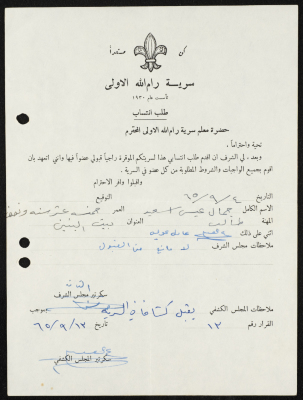 كن مستعداً
سرية رام الله الاولى
تأسست عام ١٩٣٠
طلب انتساب
حضرة معلم سرية رام الله الاولى المحترم
تحية واحتراماً،
وبعد، لي الشرف ان اقدم طلب انتسابي هذا لسريتكم الموقرة راجياً قبولي عضواً فيها وانني اتعهد بان
اقوم بجميع الواجبات والشروط المطلوبة من كل عضو في السرية.
واقبلوا وافر الاحترام
التاريخ ٤/٩/٦٥ التوقيع
الاسم الكامل جمال عيسى العمر خمسة عشر سنة ونصف
المهنة طالب بيت
اثنى على ذلك
ملاحظات مجلس الشرف لا مانع من القبول
سكرتير مجلس الشرف
ملاحظات المجلس الكشفي يقبل كشافا في السرية بموجب
القرار رقم ١٣ تاريخ ١٣/٩/٦٥
سكرتير المجلس الكشفي